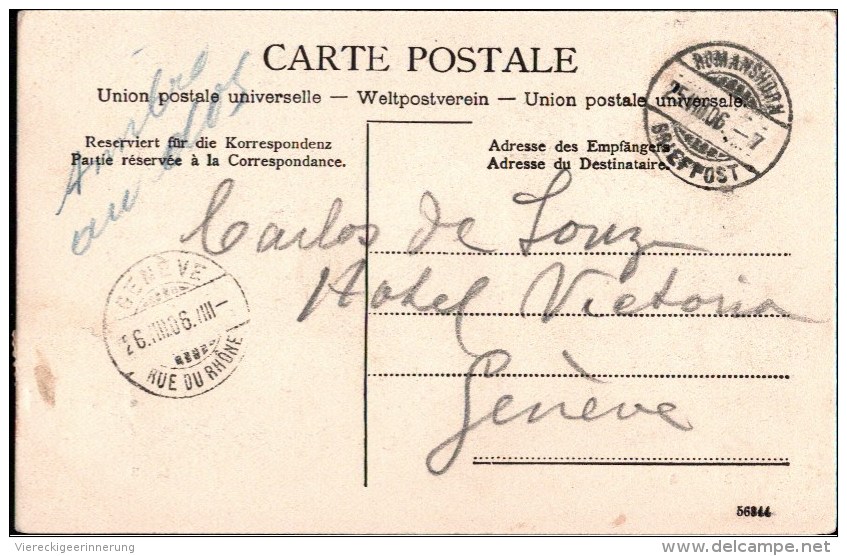 CARTE POSTALE
Union postale universelle — Weltpostverein — Union postale universale.
Reserviert für die Korrespondenz
Partie réservée à la Correspondance.
Adresse des Empfängers
Adresse du Destinataire.
timbre
au dos
ROMANSHORN
25.VIII.06. –7
BRIEFPOST
Carlos de Souza
Hotel Victoria
Genève
GENÈVE
26.VIII.06.VIII–
RUE DU RHÔNE
56844
Viereckigeerinnerung
delcampe.net